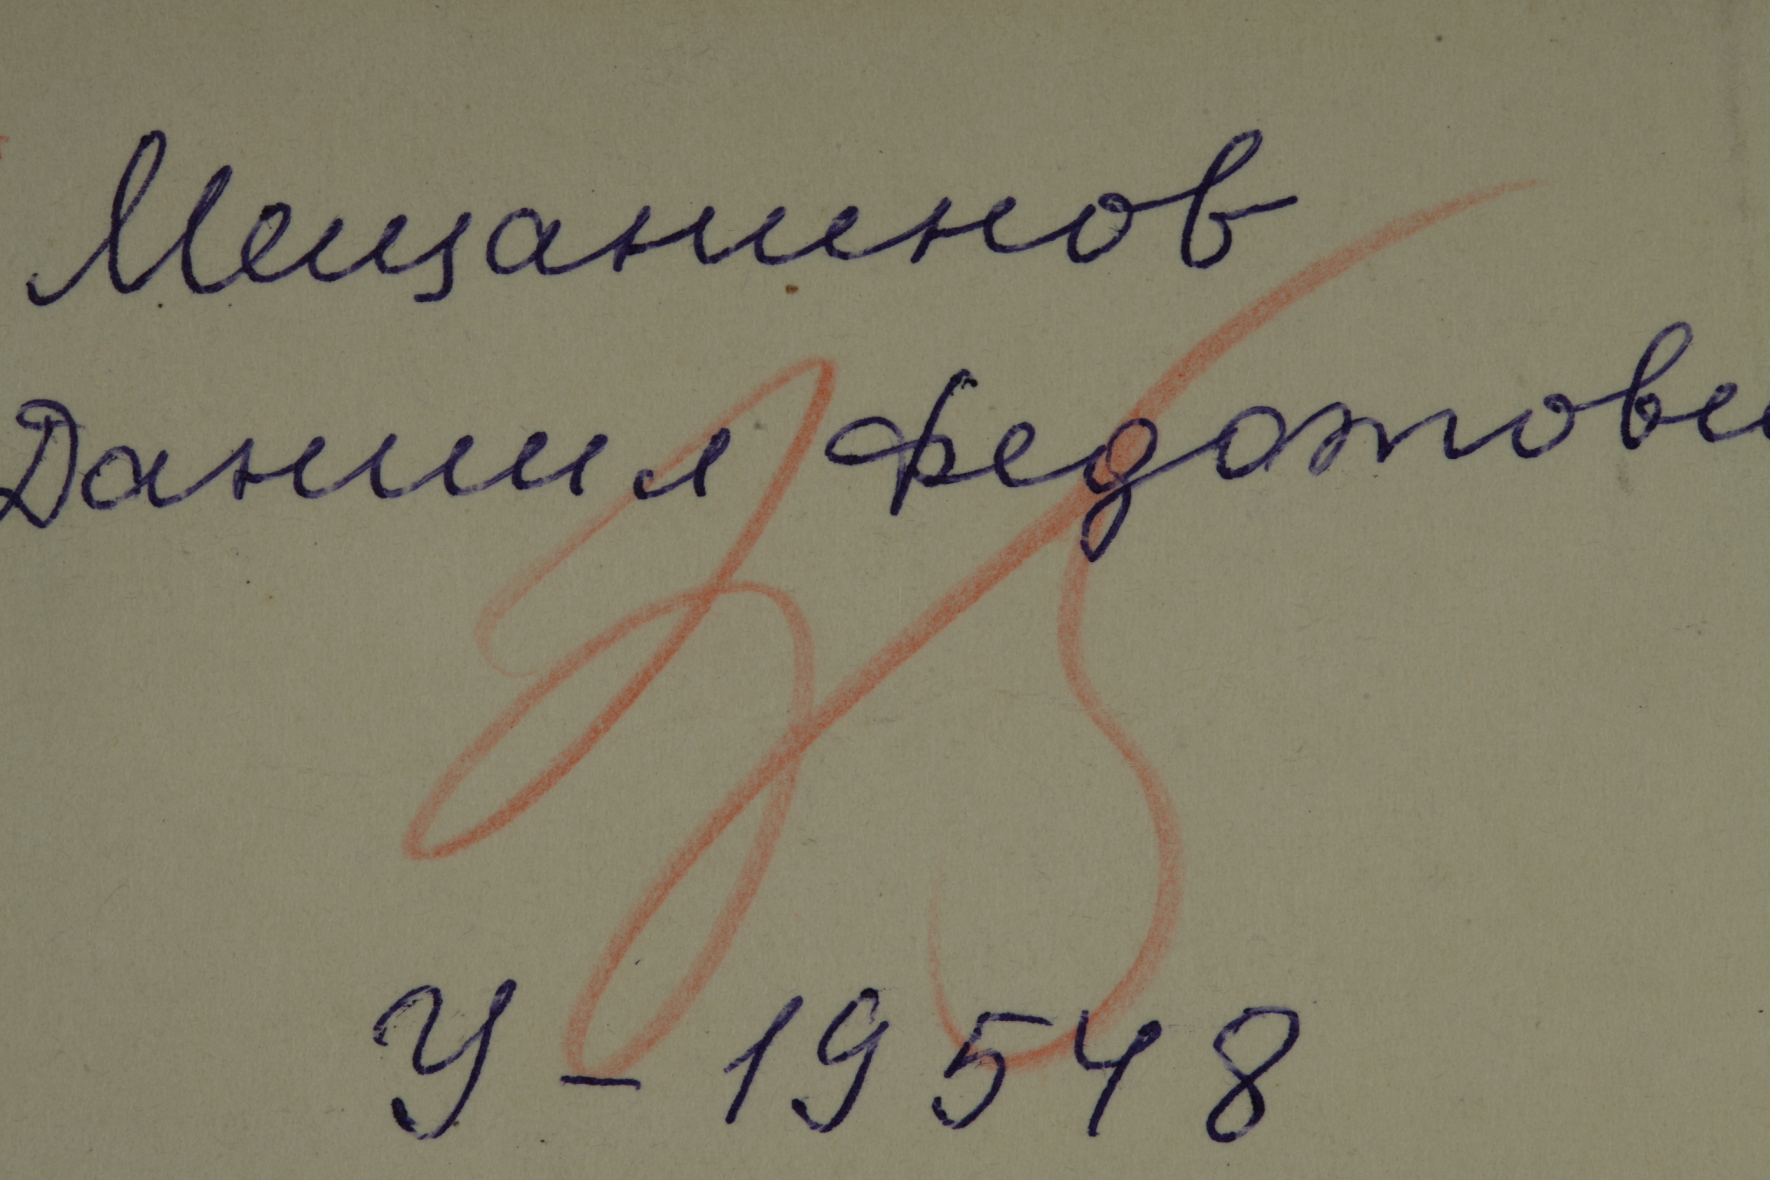 Мещанинов
Даниил Федотови
У - 19548